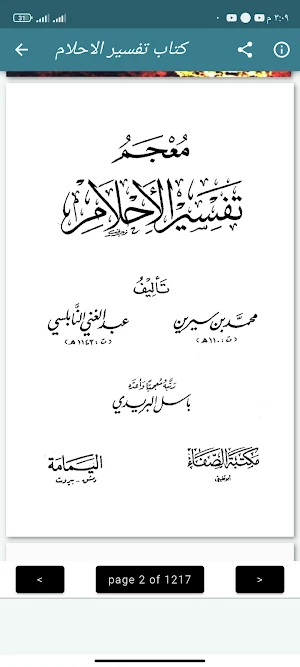 31
٣:٠٩ م
كتاب تفسير الاحلام
معجم
تفسير الأحلام
تأليف
محمد بن سيرين
(ت: ١١٠ هـ)
عبد الغني النَّابلسي
(ت: ١١٤٣ هـ)
رتبه معجميًا وأعده
باسل البريدي
مكتبة الصفاء
أبوظبي
اليمامة
دمشق - بيروت
<
page 2 of 1217
>